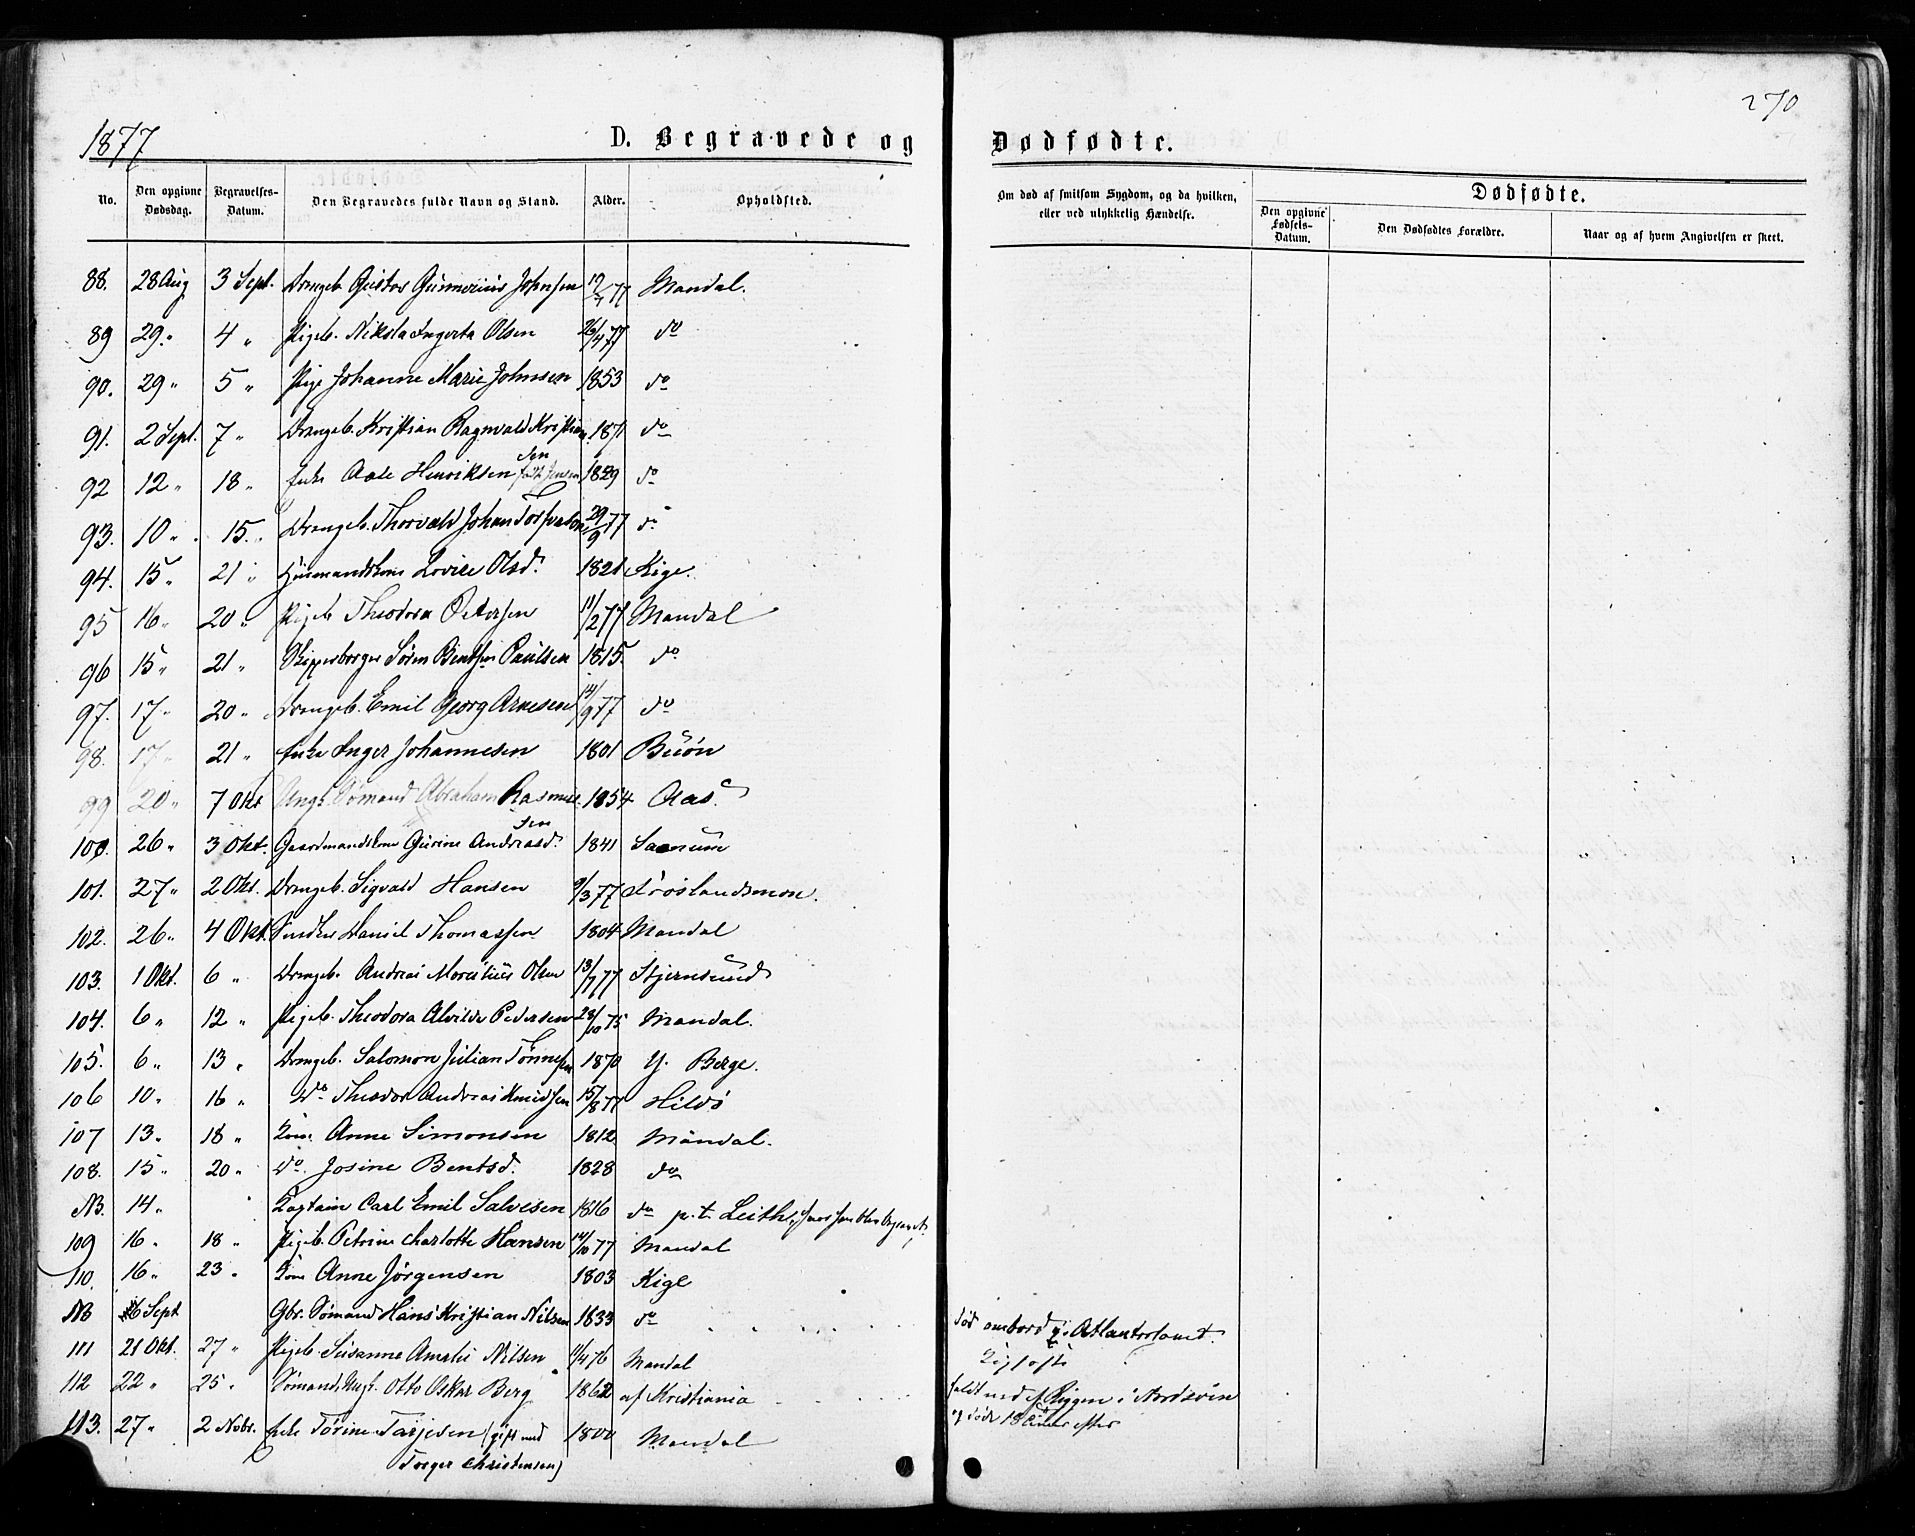 1877
270
D. Begravede og Dødfødte.
No.
Den opgivne Dødsdag.
Begravelses-Datum.
Den Begravedes fulde Navn og Stand.
Alder.
Opholdsted.
Om død af smitsom Sygdom, og da hvilken, eller ved ulykkelig Hændelse.
Dødfødte.
Den opgivne Fødsels-Datum.
Den Dødfødtes Forældre.
Naar og af hvem Angivelsen er skeet.
88. 28 Aug 3 Sept. Drengeb. Gustav Gunnerius Johnsen 17/7 77 Mandal.
89 29 „ 4 „ Pigeb. Ingerta Olsen 26/4 77 do
90. 29 „ 5 „ Pige Johanne Marie Johnsen 1853 do
91. 2 Sept. 7 „ Drengeb. Kristian Ragnvald Kristian 1871 do
sen
92 12 „ 18 „ Enke Aase Henriksen født Jensen 1829 do
93. 10 „ 15. „ Drengeb. Thorvald Johan 29/9 77 do
94. 15 „ 21 „ Husmandskone Lovise Olsd. 1821 Kige.
95 16 „ 20 „ Pigeb. Theodora Petersen 11/2 77 Mandal
96 15 „ 21 „ Skipperborger Søren Bentsen Paulsen 1815. do
97. 17 „ 20 „ Drengeb. Emil Georg Arnesen 14/9 77 do
98. 17 „ 21 „ Enke Inger Johannesen 1801 Buøn
99 20 „ 7 Okt Ungk. Sømand Abraham Rasmus 1854 Aas.
sen
100. 26 „ 3 Okt. Gaardmandskone Gurine Andreasd. 1841 Sanum
101. 27 „ 2 Okt. Drengeb. Sigvald Hansen 9/3 77 Frøslandsmon.
102. 26 „ 4 Okt. Daniel Thomassen 1804 Mandal
103. 1 Okt. 6 „ Drengeb. Andreas Olsen 13/7 77 Stjernsund
104. 6 „ 12 „ Pigeb. Theodora Alvilde Pedersen 28/10 75 Mandal.
105. 6 „ 13 „ Drengeb. Salomon Julian Tønnesen 1870 Y. Berge.
106 10 „ 16 „ Do Theodor Andreas Knudsen 15/8 77 Hildø
107 13 „ 18 „ Kone Anne Simonsen 1812 Mandal.
108. 15 „ 20 „ Do. Josine Bentsd. 1828 do
NB. 14 „ Kaptain Carl Emil Salvesen 1816 do p.t. Leith, hvor han blev begravet.
109 16 „ 18 „ Pigeb. Petrine Charlotte Hansen 14/10 77 Mandal
110. 16 „ 23 „ Kone Anne Jørgensen 1803 Kige
NB 6 Sept Gbr. Sømand Hans Kristian Nilsen 1833 do død ombord i Atlanterhavet.
111 21 Okt. 27 „ Pigeb. Susanne Amalie Nilsen 11/4 76 Mandal
112 22 „ 25 „ Sømand, Ungk. Otto Oskar Berg 1862 af Kristiania faldt ned af Riggen i Nordsøen
og døde 18 timer efter
113. 27 „ 2 Nobr. Enke Tørine Tarjesen (gift med 1800 Mandal
Torger Christensen)